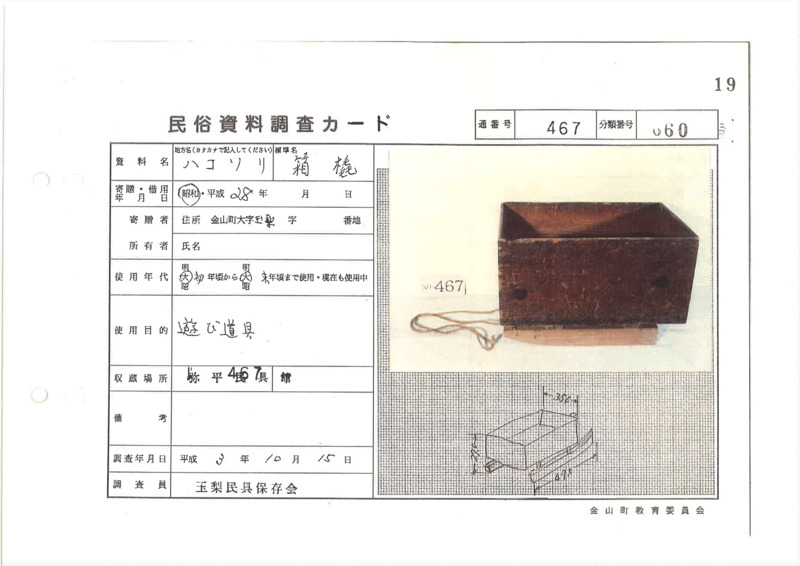 19
民俗資料調査カード
通番号 467 分類番号 060
資料名
地方名(カタカナで記入してください) 標準名
ハコソリ 箱橇
寄贈・借用年月日 昭和・平成 28年 月 日
寄贈者 住所 金山町大字玉梨字 番地
所有者 氏名
使用年代 明大昭 初年頃から 明大昭 末年頃まで使用・現在も使用中
使用目的 遊び道具
収蔵場所 弥平民具館
467
備考
調査年月日 平成 3年 10月 15日
調査員 玉梨民具保存会
No 467
350
470
金山町教育委員会